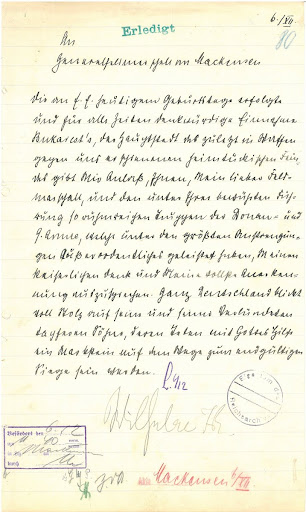 6./XII.
Erledigt
80
An
Generalfeldmarschall von Mackensen
Die an E. E. heutigem Geburtstage erfolgte
und für alle Zeiten denkwürdige Einnahme
Bukarest's, der Hauptstadt des zuletzt in Waffen
gegen uns erschienenen heimtückischen Fein
des gibt Mir Anlaß, Ihnen, Mein lieber Feld-
marschall, und den unter Ihrer bewährten Füh-
rung so ruhmreichen Truppen der Donau- und
9. Armee, welche unter den größten Anstrengun-
gen Außerordentliches geleistet haben, Meinen
Kaiserlichen Dank und Meine vollste Anerken-
nung auszusprechen. Ganz Deutschland blickt
voll Stolz auf seine und seiner Verbündeten
tapferen Söhne, deren Taten mit Gottes Hilfe
ein Markstein auf dem Wege zum endgültigen
Siege sein werden.
Wilhelm
Befördert den 6.12
Mackensen 6/XII.